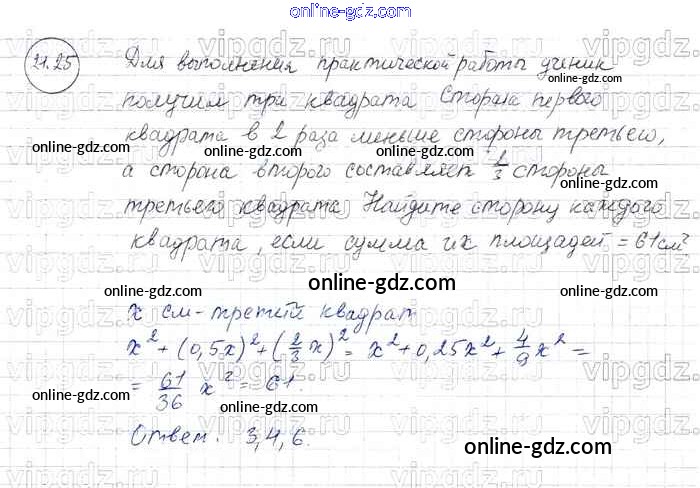 online-gdz.com
21.25 Для выполнения практической работы ученик
online-gdz.com
получил три квадрата Сторона первого
online-gdz.com
квадрата в 2 раза меньше стороны третьего,
online-gdz.com
а сторона второго составляет 2/3 стороны
online-gdz.com
третьего квадрата Найдите сторону каждого
квадрата, если сумма их площадей = 61 см²
online-gdz.com
x см - третий квадрат
online-gdz.com
x² + (0,5x)² + (2/3 x)² = x² + 0,25x² + 4/9 x² =
online-gdz.com
= 61/36 x² = 61.
online-gdz.com
Ответ. 3,4,6.
online-gdz.com
online-gdz.com